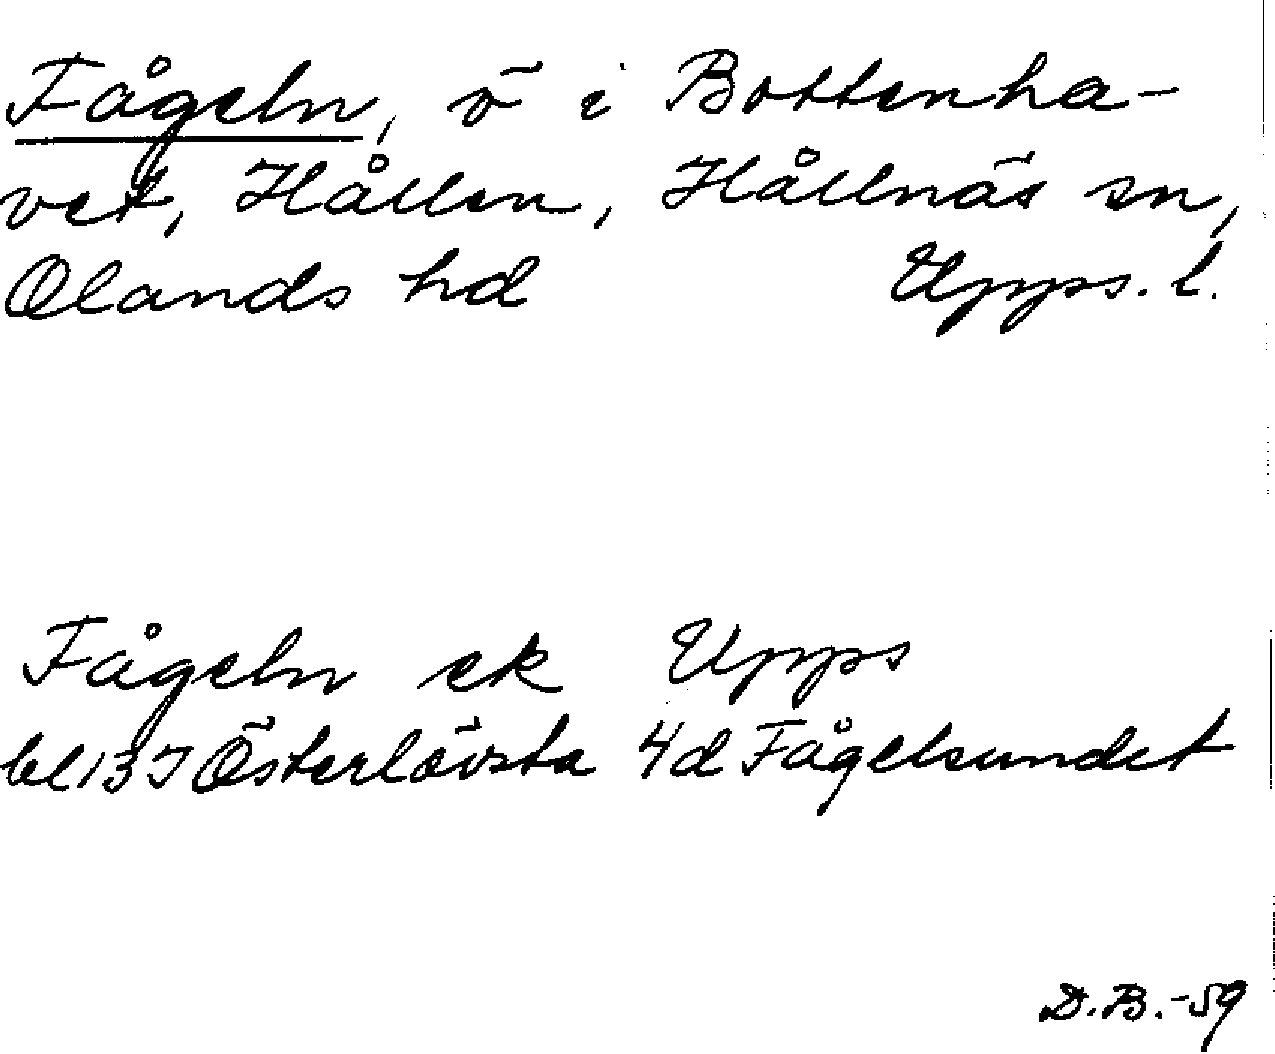 Fågeln, ö i Bottenha-
vet, Hållen, Hållnäs sn,
Olands hd Upps. l.
Fågeln ek Upps
bl 13 I Österlövsta 4d Fågelsundet
D.B.-59